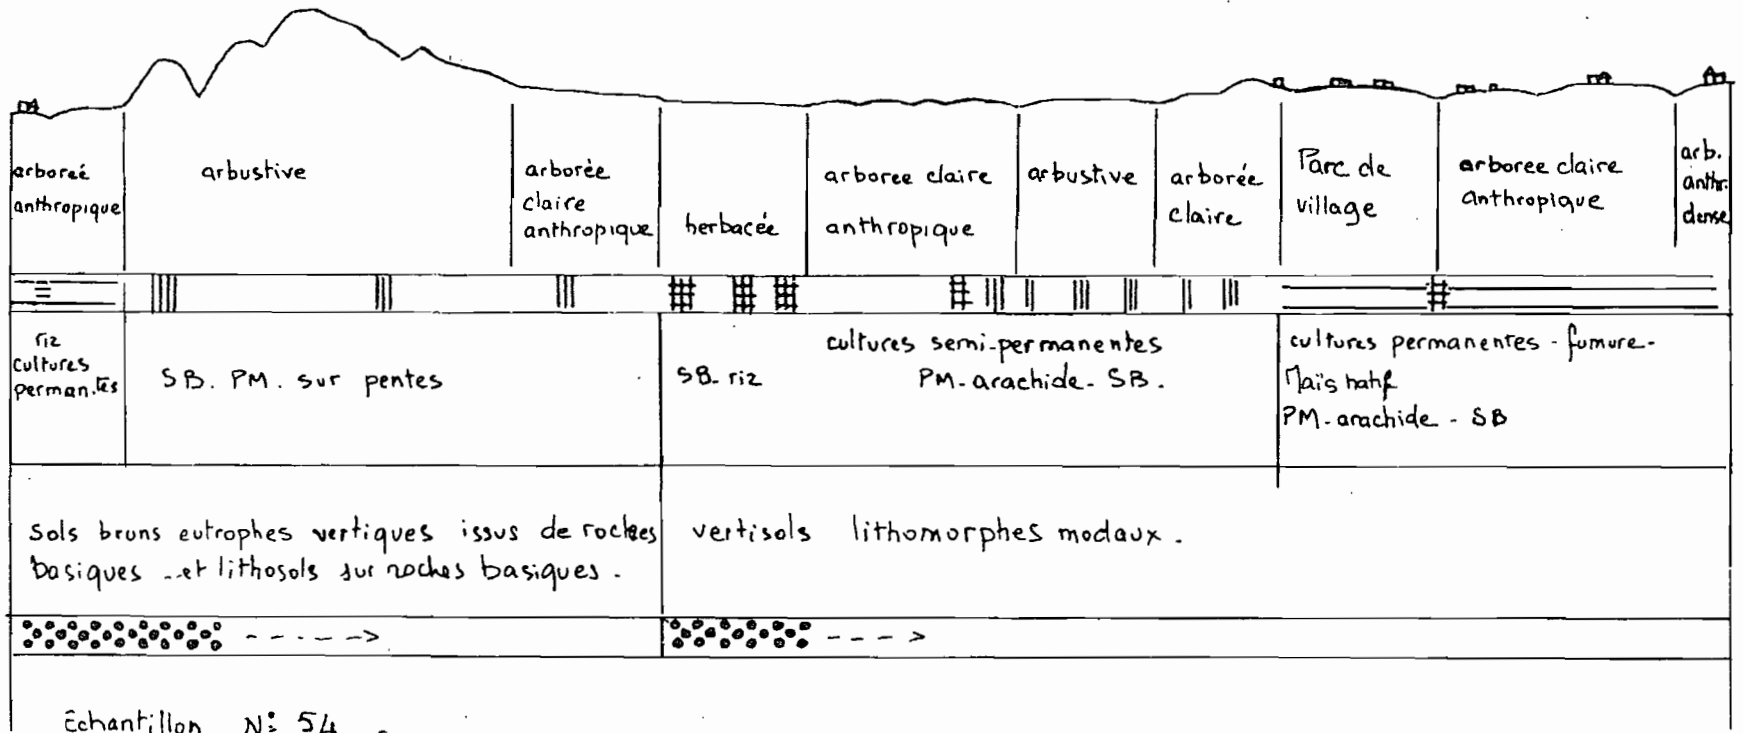 arboreé
anthropique
arbustive
arborèe
claire
anthropique
herbacée
arboree claire
anthropique
arbustive
arborée
claire
Parc de
village
arboree claire
anthropique
arb.
anthr.
dense
riz
cultures
perman.tes
SB. PM. sur pentes
SB- riz
cultures semi-permanentes
PM- arachide- SB.
cultures permanentes - fumure-
Maïs hatif
PM- arachide - SB
Sols bruns eutrophes vertiques issus de roches
basiques -et lithosols sur roches basiques.
vertisols lithomorphes modaux.
Echantillon N: 54